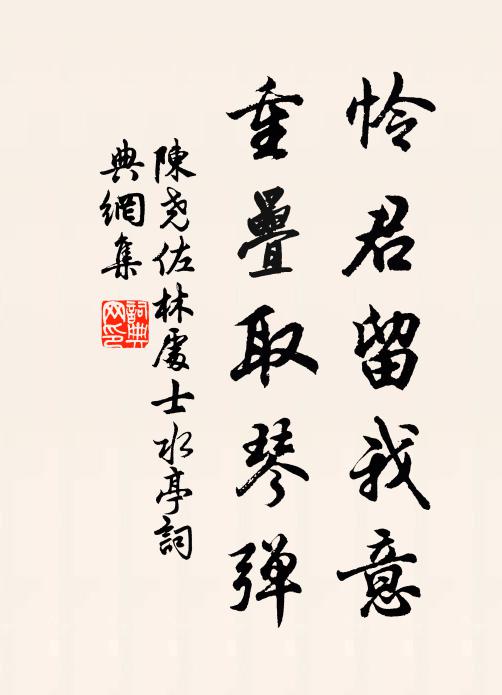 怜君留我意
重疊取琴弹
陳尧佐林處士水亭詞
典網集
詞典
网印